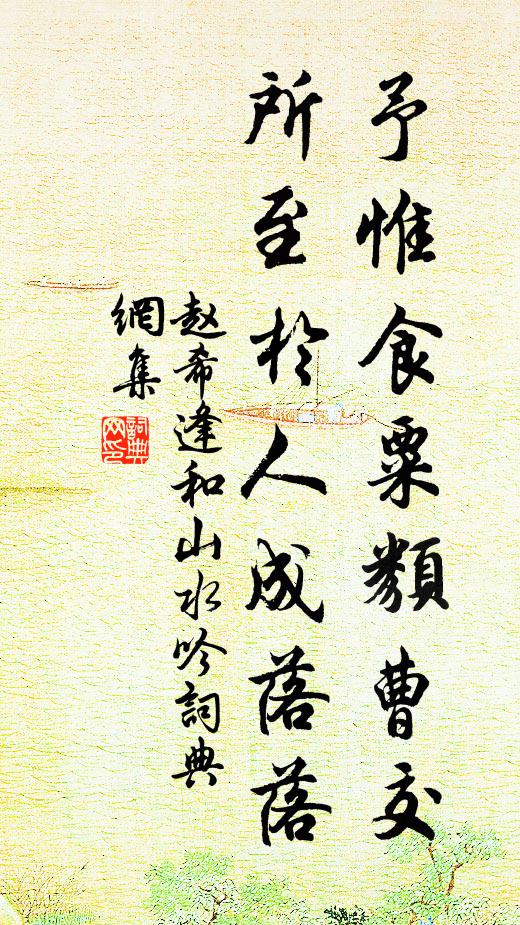 予惟食粟類曹交
所至於人成落落
赵希逢和山水吟詞典
網集
詞典
网印